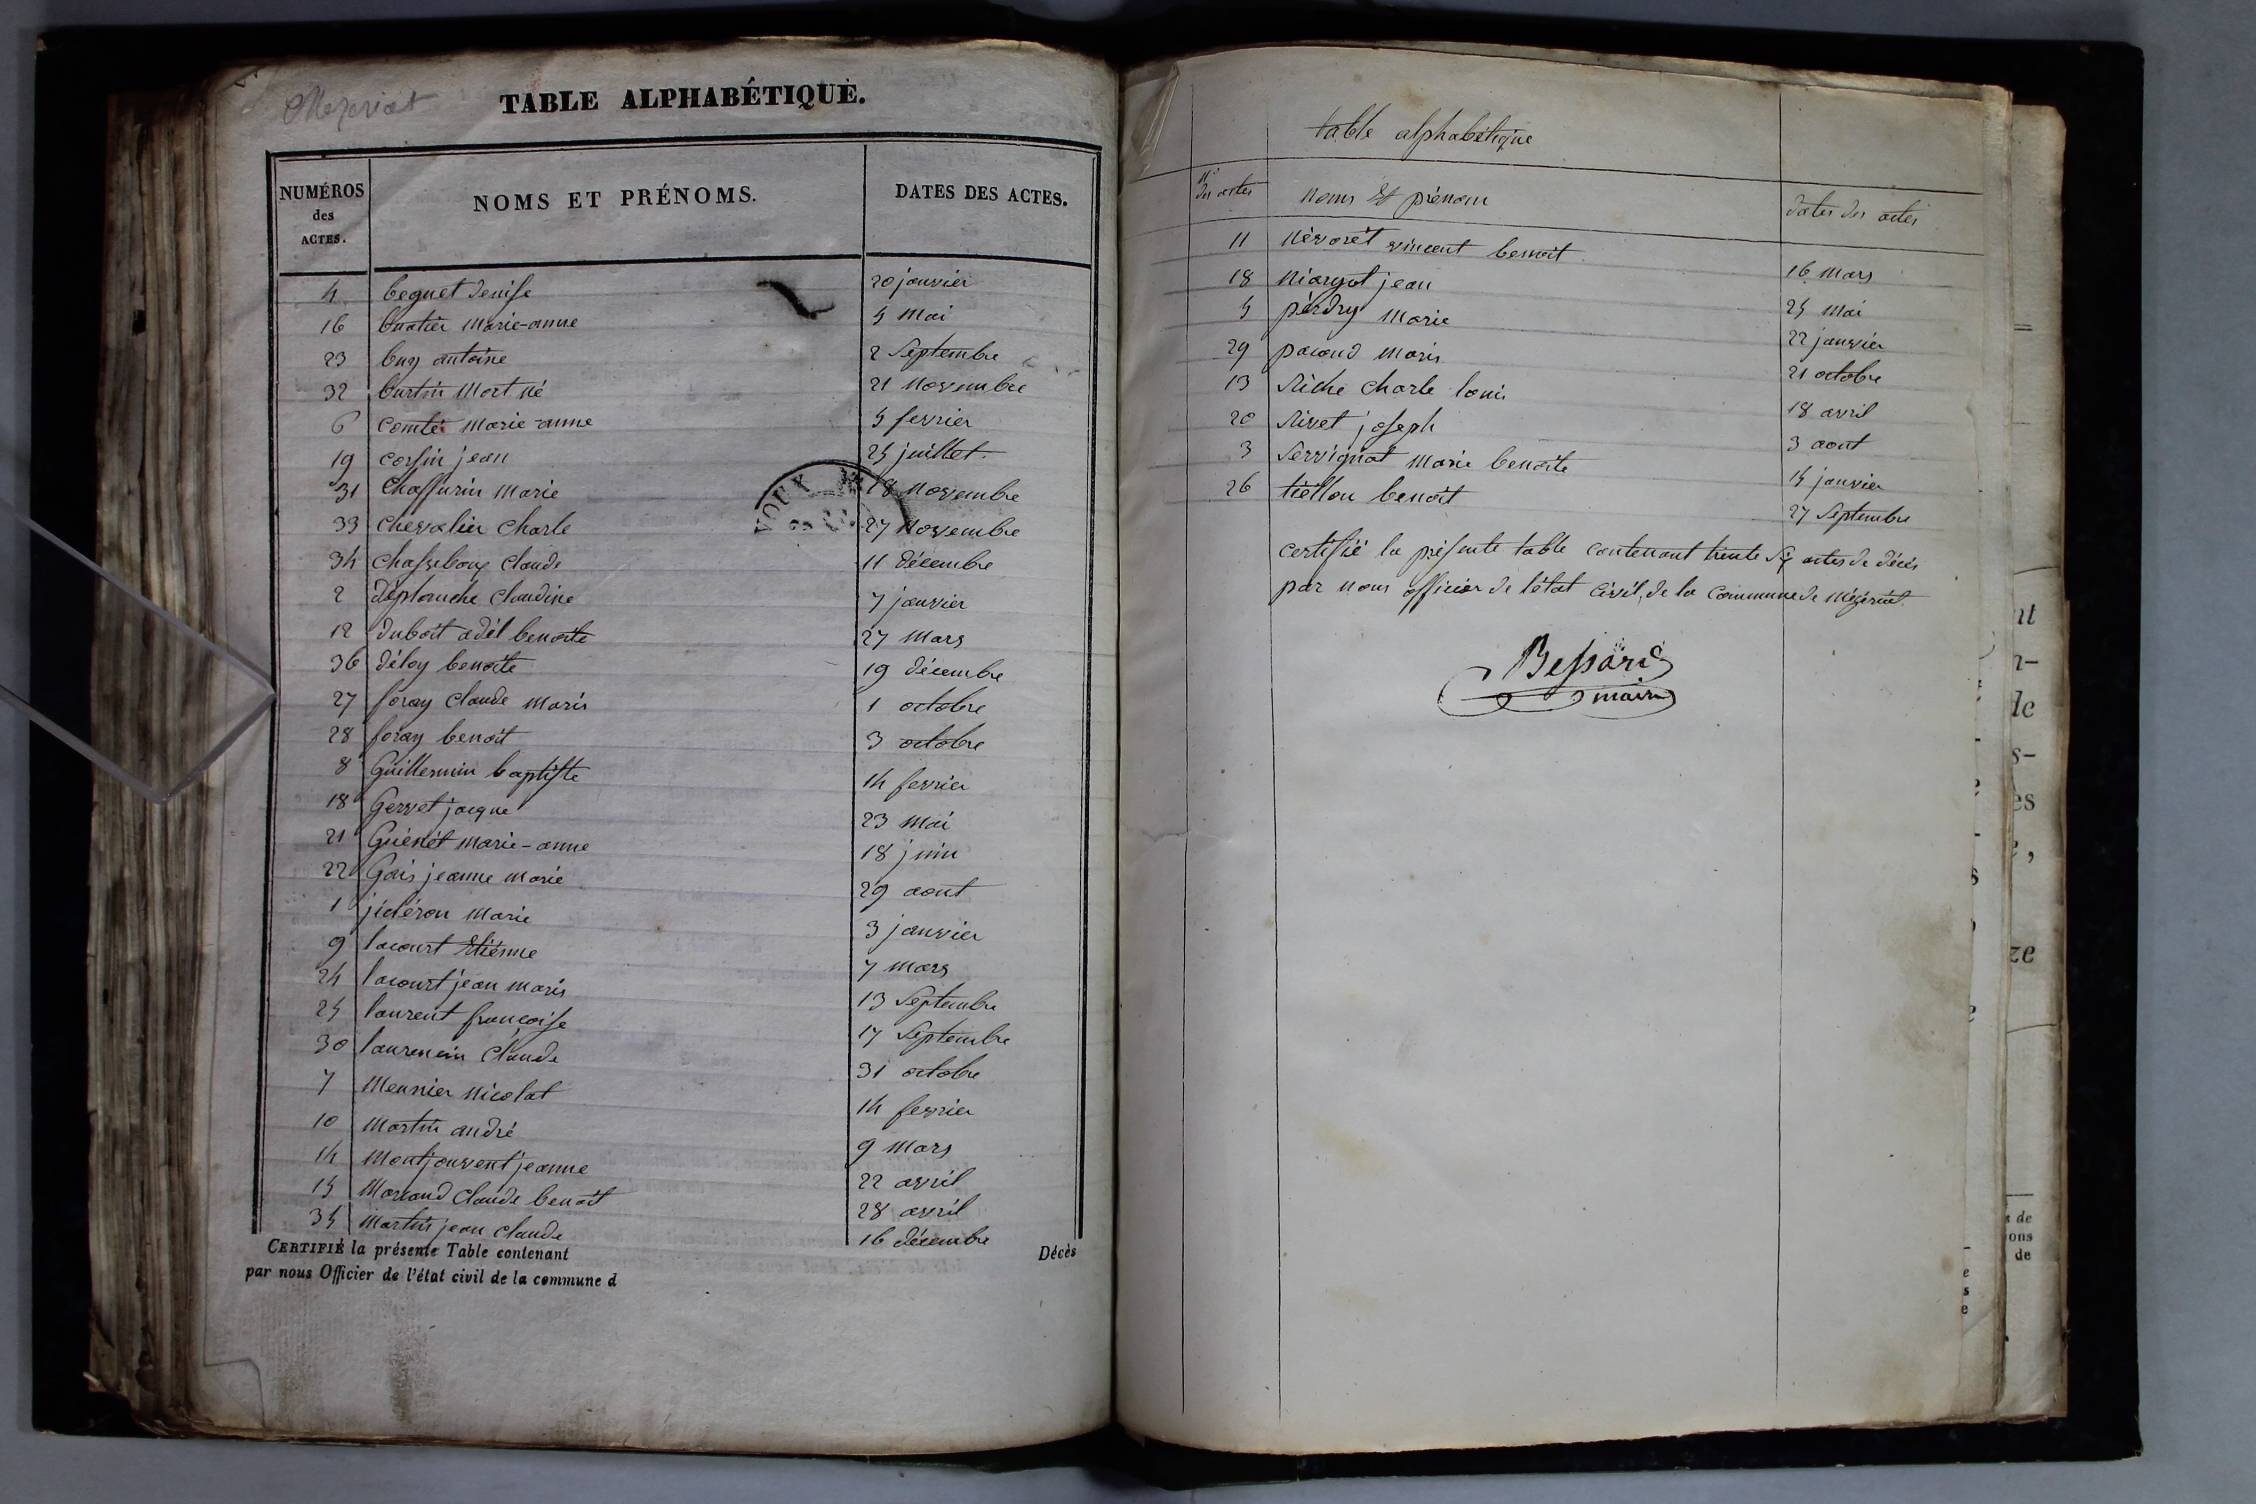 Mezeriat
TABLE ALPHABÉTIQUE.
NUMÉROS des ACTES. NOMS ET PRÉNOMS. DATES DES ACTES.
4 beguet denise 20 janvier
16 buatier marie-anne 5 mai
23 buy antoine 2 Septembre
32 burtin mort né 21 novembre
6 comte marie-anne 5 fevrier
19 corsin jean 25 juillet
31 chaffurin marie 18 novembre
33 chevalier charle 27 novembre
34 chasseboux claude 11 décembre
2 déplanche claudine 7 janvier
12 duboit adél benoite 27 mars
36 déloy benoite 19 décembre
27 foray claude marie 1 octobre
28 foray benoit 3 octobre
8 Guillermin baptiste 14 fevrier
18 Gervet jacque 23 mai
21 Guénét marie-anne 18 juin
22 Gais jeanne marie 29 aout
1 jidéron marie 3 janvier
9 lacourt Etiénne 7 mars
24 lacourt jean marie 13 Septembre
25 laurent françoise 17 Septembre
30 laurencin claude 31 octobre
7 meunier nicolat 14 fevrier
10 martin andré 9 mars
14 montjouvent jeanne 22 avril
15 morand claude benoit 28 avril
35 martin jean claude 16 décembre
CERTIFIÉ la présente Table contenant Décès
par nous Officier de l'état civil de la commune d
table alphabétique
Nos des actes noms Et prénom dates des actes
11 névorét vincent benoit 16 mars
18 niargot jean 25 mai
5 perdry marie 22 janvier
29 pacoud marie 21 octobre
13 Riche charle louis 18 avril
20 Rivet joseph 3 aout
3 Servignat marie benoite 15 janvier
26 tiéllon benoit 27 Septembre
certifié la présente table contenant trente Six actes de décés
par nous officier de létat civil, de la commune de mézériat.
Bessard
maire